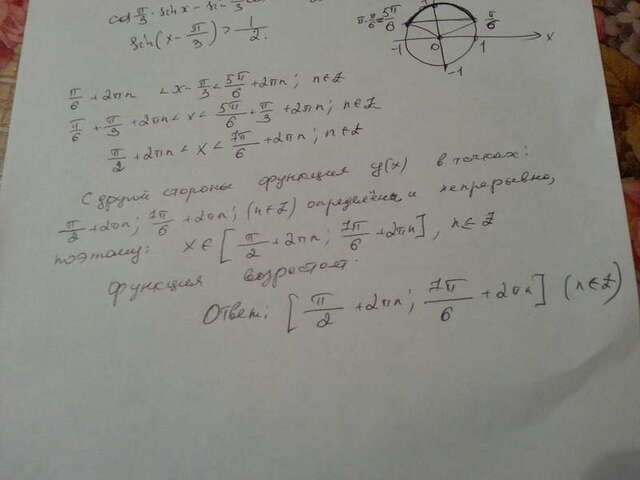 cos π/3 · sin x - sin π/3 cos
sin(x - π/3) > 1/2.
π - π/6 = 5π/6
π/6
-1 0 1 x
-1
π/6 + 2πn < x - π/3 < 5π/6 + 2πn; n∈Z
π/6 + π/3 + 2πn < x < 5π/6 + π/3 + 2πn; n∈Z
π/2 + 2πn < x < 7π/6 + 2πn; n∈Z
С другой стороны функция y(x) в точках:
π/2 + 2πn; 7π/6 + 2πn; (n∈Z) определена и непрерывно,
поэтому: x∈[π/2 + 2πn; 7π/6 + 2πn], n∈Z
функция возрастает.
Ответ: [π/2 + 2πn; 7π/6 + 2πn] (n∈Z)